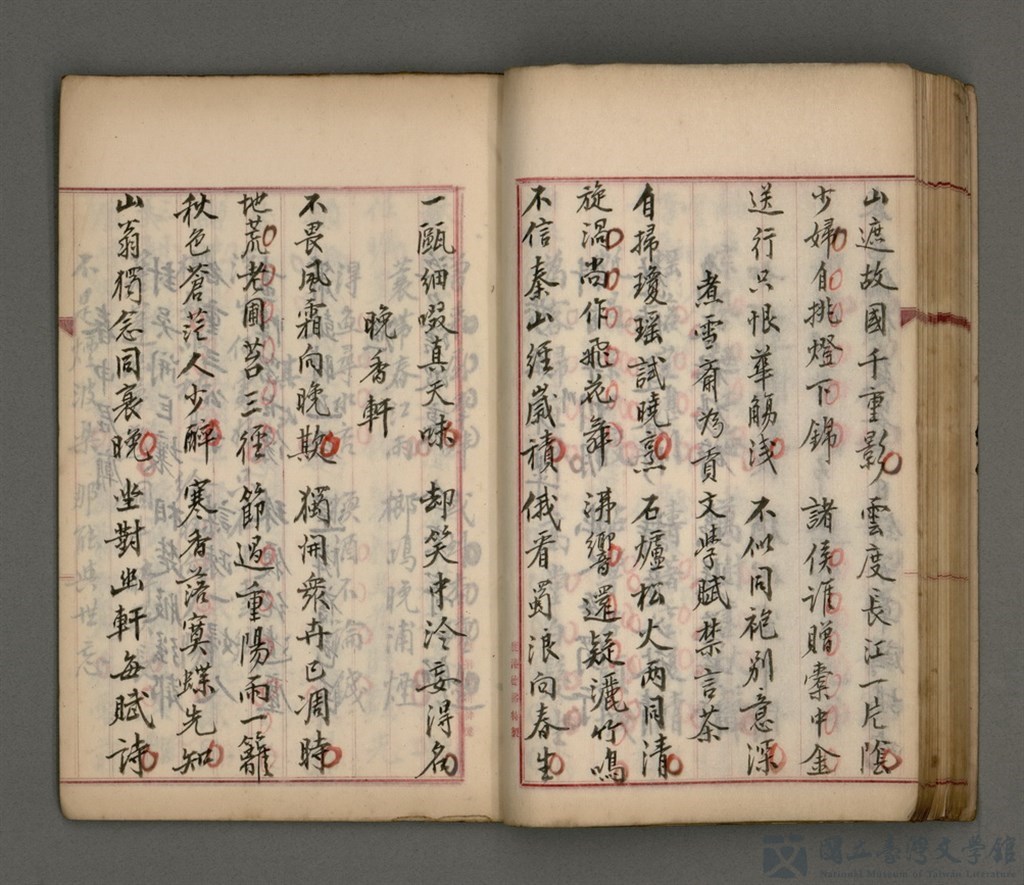 山遮故國千重影　雲度長江一片陰
少婦自挑燈下錦　諸侯誰贈橐中金
送行只恨華觴淺　不似同袍別意深
煮雪齋為貢文學賦禁言茶
自掃瓊瑤試曉烹　石爐松火兩同清
旋渦尚作飛花舞　沸響還疑灑竹鳴
不信秦山經歲積　俄看蜀浪向春生
一甌細啜真天味　却笑中泠妄得名
晚香軒
不畏風霜向晚欺　獨開衆卉已凋時
地荒老圃苔三徑　節過重陽雨一籬
秋色蒼茫人少醉　寒香落寞蝶先知
山翁獨念同衰晚　坐對幽軒每賦詩
國立臺灣文學館
National Museum of Taiwan Literature